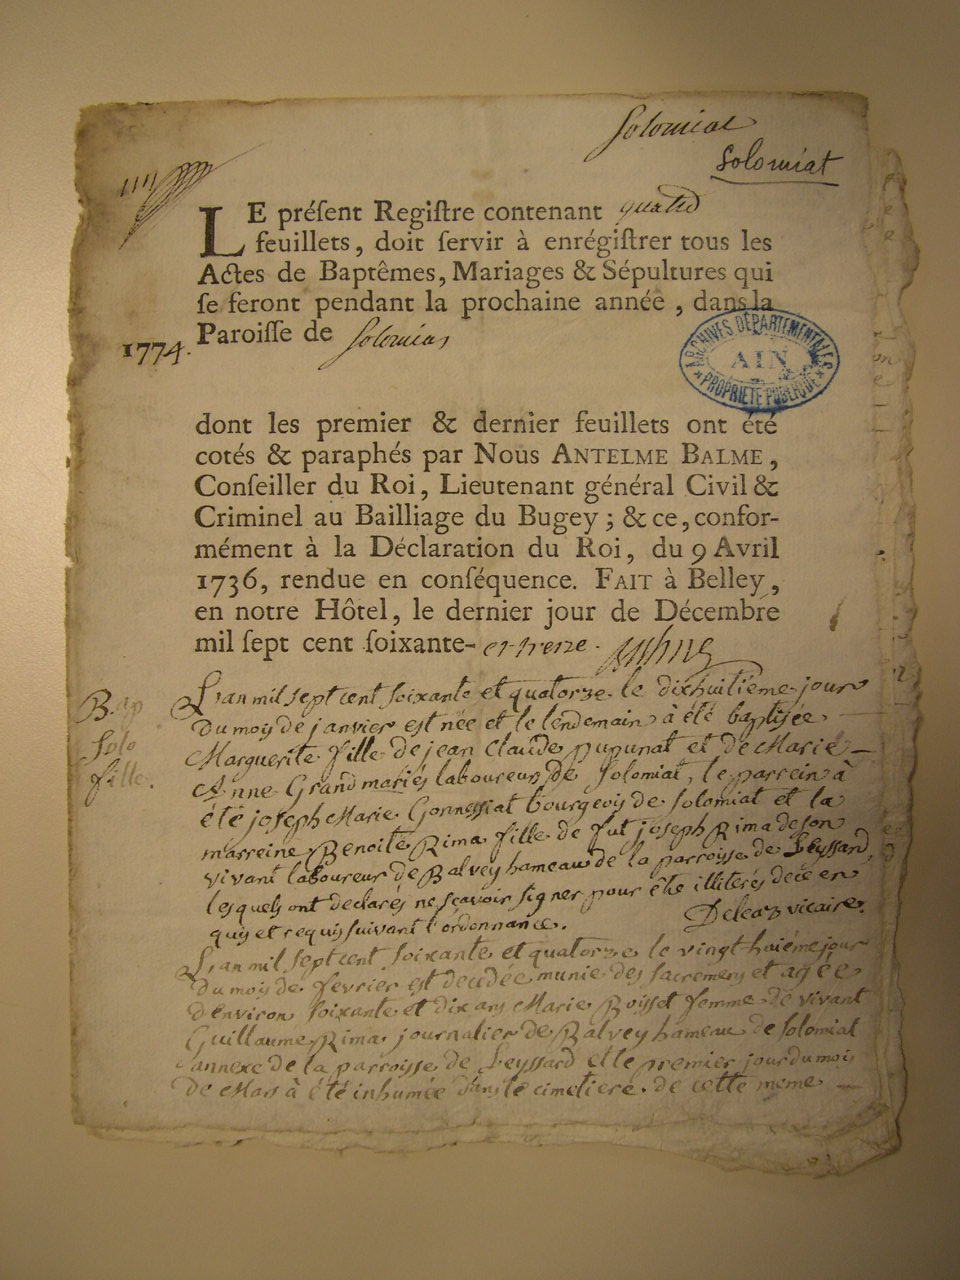 Solomiat
Solomiat
LE préſent Regiſtre contenant quatre
feuillets, doit ſervir à enrégiſtrer tous les
Actes de Baptêmes, Mariages & Sépultures qui
ſe feront pendant la prochaine année, dans la
Paroiſſe de Solomiat
1774.
ARCHIVES DÉPARTEMENTALES
AIN
PROPRIÉTÉ PUBLIQUE
dont les premier & dernier feuillets ont été
cotés & paraphés par Nous ANTELME BALME,
Conſeiller du Roi, Lieutenant général Civil &
Criminel au Bailliage du Bugey; & ce, confor-
mément à la Déclaration du Roi, du 9 Avril
1736, rendue en conſéquence. FAIT à Belley,
en notre Hôtel, le dernier jour de Décembre
mil ſept cent ſoixante- et treize.
Bap
Solo
fille.
L'an mil sept cent soixante et quatorze le dixhuitième jour
du mois de janvier est née et le lendemain à été baptisée
Marguerite fille de jean Claude et de Marie
Anne Grand mariés laboureurs de Solomiat, le parrein à
été joseph Marie Gonnessiat bourgeois de Solomiat et la
marreine Benoite Rima fille de fut joseph Rima de son
vivant laboureur de Balvey hameau de la parroisse de Leyssard,
lesquels ont declarés ne sçavoir signer pour être illiterés de ce en
quis et requis suivant l'ordonnance. Deleaz vicaire.
L'an mil sept cent soixante et quatorze le vingt huitième jour
du mois de fevrier est decedée munie des sacremens et agée
d'environ soixante et dix ans Marie Boisset femme de vivant
Guillaume Rima journalier de Balvey hameau de Solomiat
annexe de la parroisse de Leyssard et le premier jour du mois
de Mars à été inhumée dans le cimetiere de cette meme